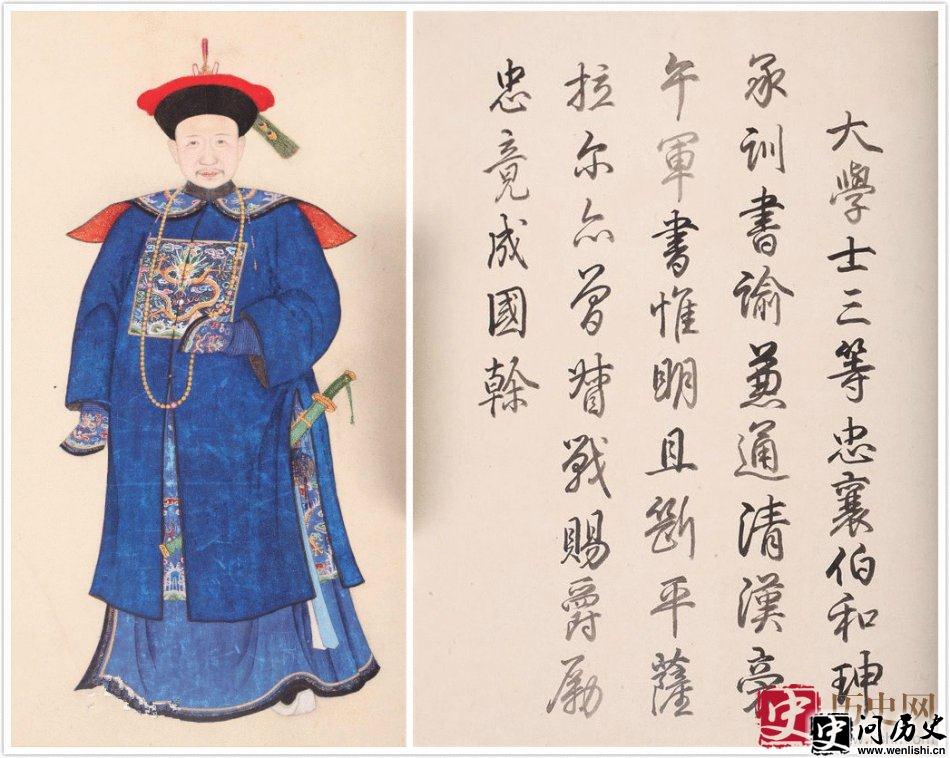 大學士三等忠襄伯和珅
承訓書諭兼通清漢旁
午軍書惟明且斷平薩
拉尔亦曾督戰賜爵勵
忠竟成國幹
史 历史网
史 问历史
www.wenlishi.cn